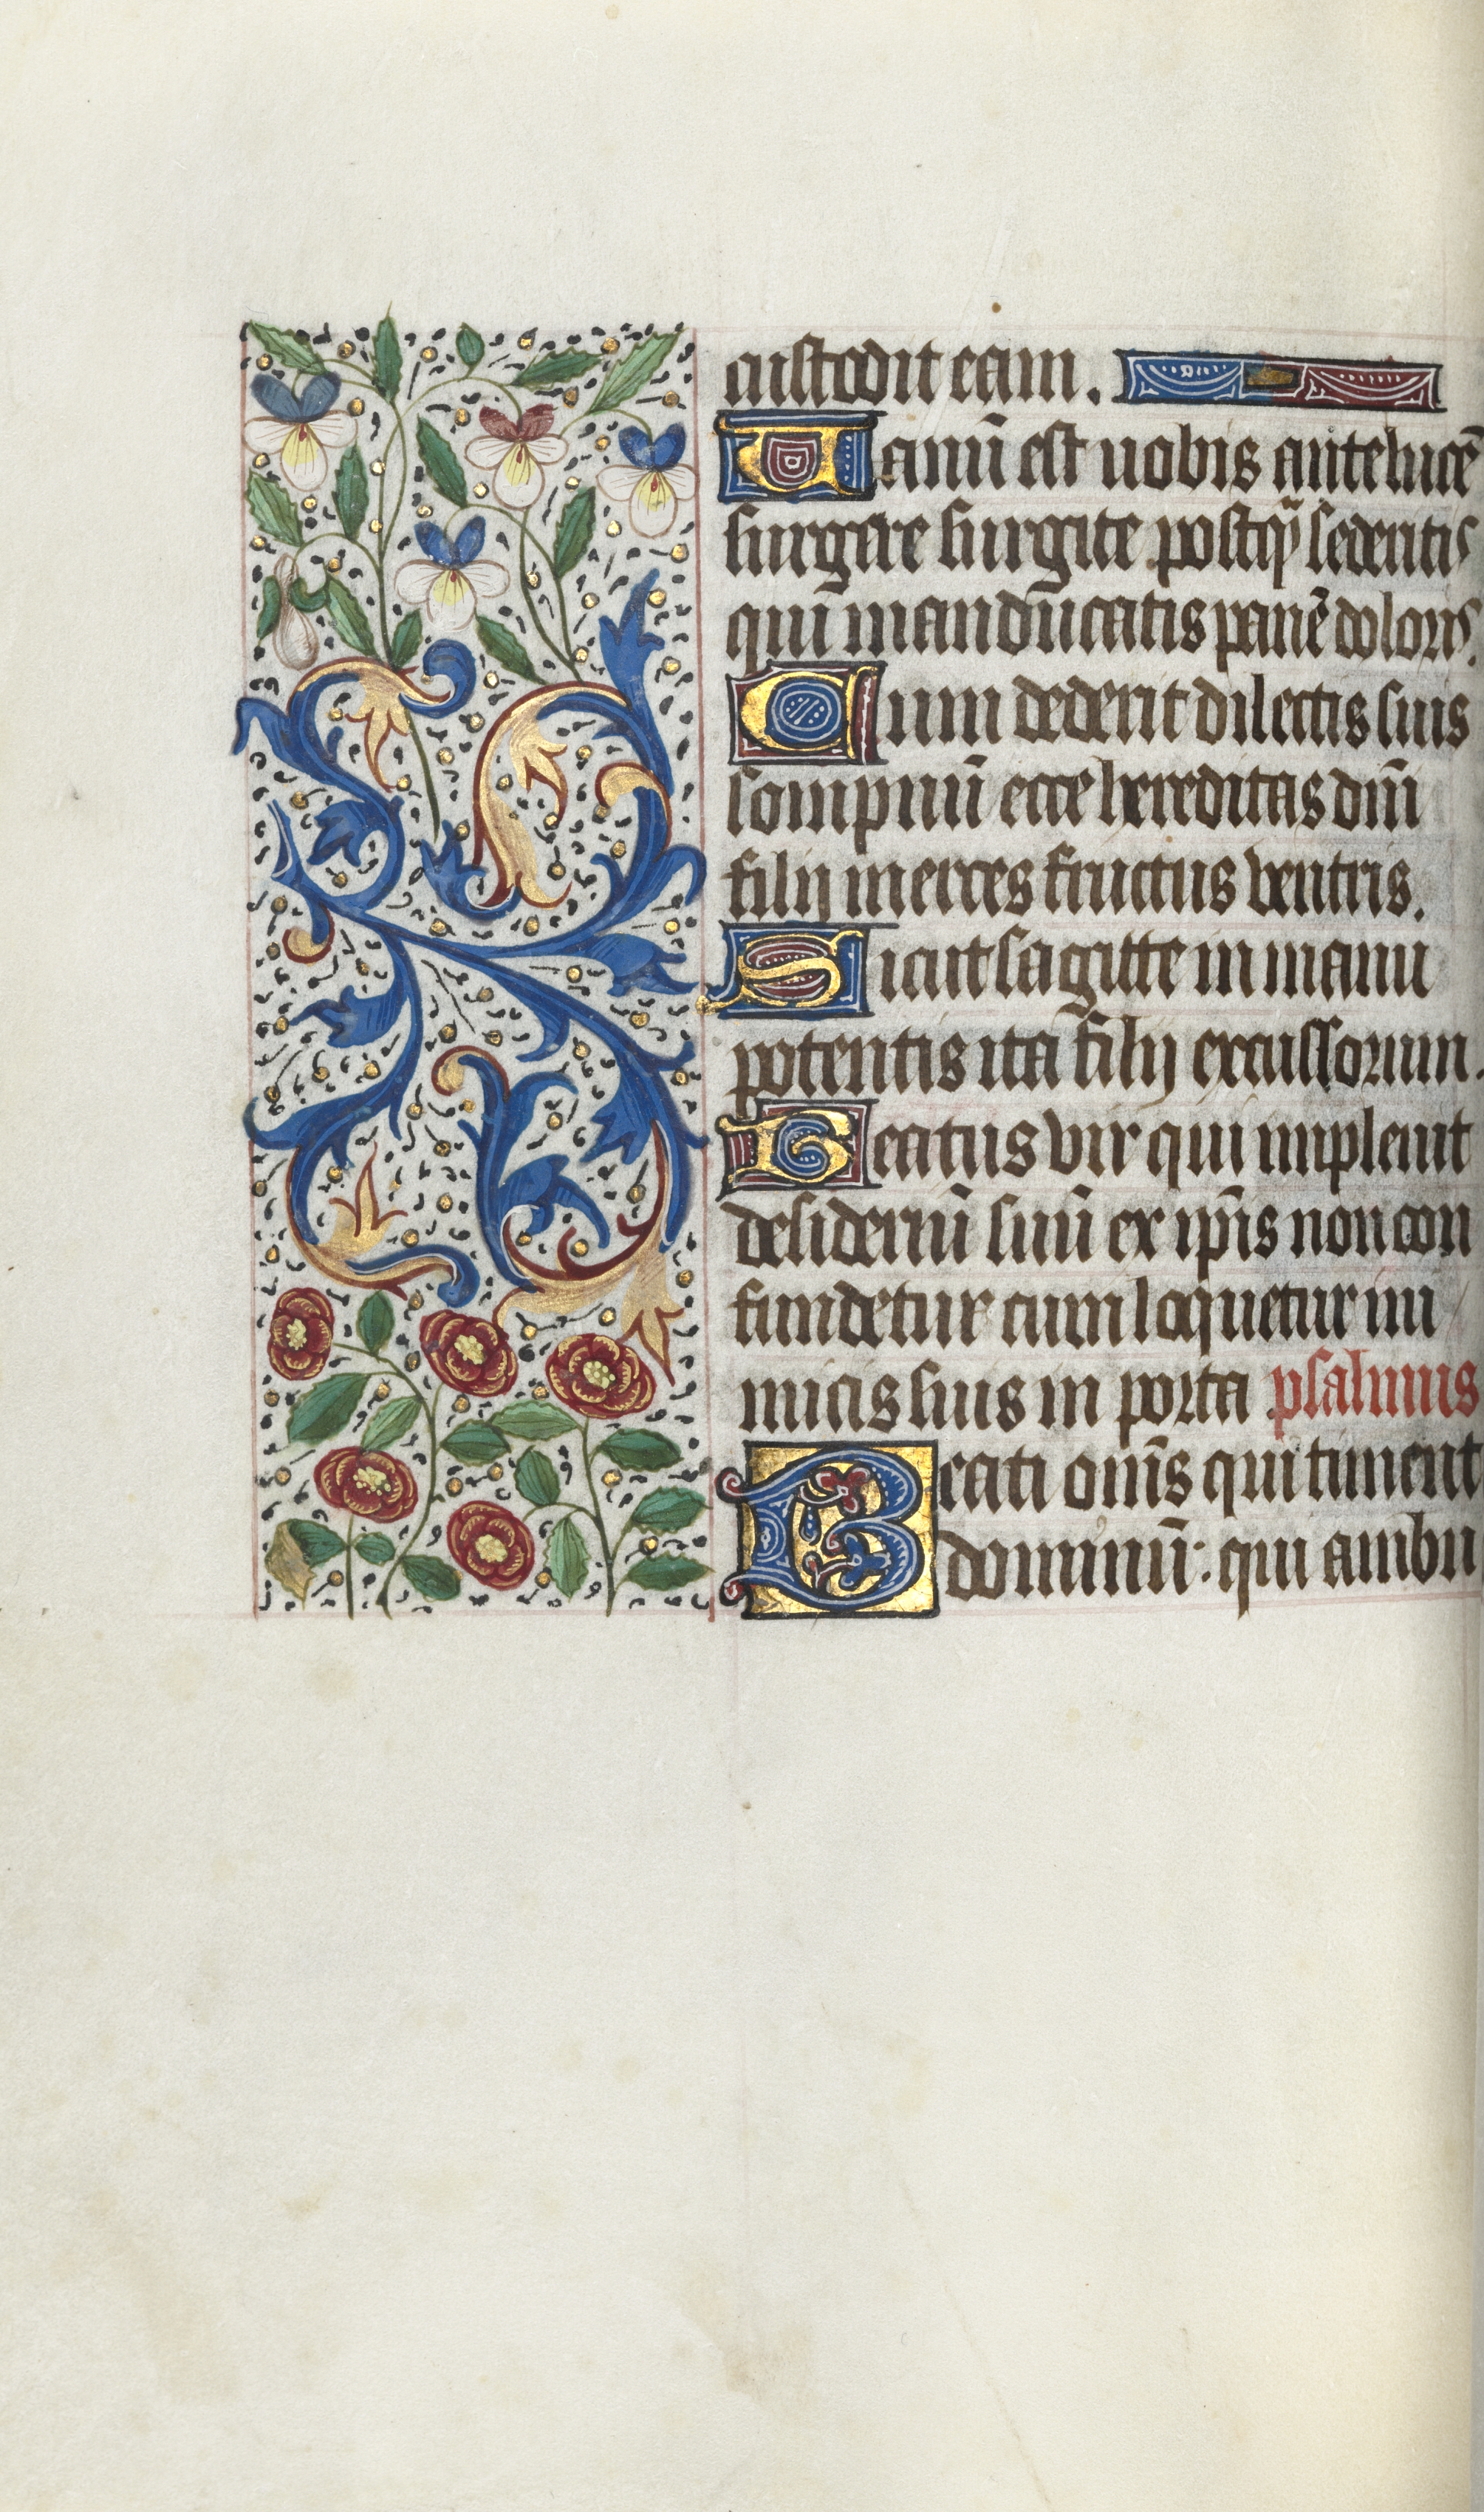 custodit eam.
Uanū est uobis antelucē
surgere surgite postq̄ sederitis
qui manducatis panē doloris.
Cum dederit dilectis suis
sompnū ecce hereditas dn̄i
filij merces fructus ventris.
Sicut sagitte in manu
potentis ita filij excussorum.
Beatus vir qui impleuit
desideriū suū ex ip̄is non con
fundetur cum loquetur ini
micis suis in porta psalmus
Beati om̄s qui timent
dominū: qui ambu